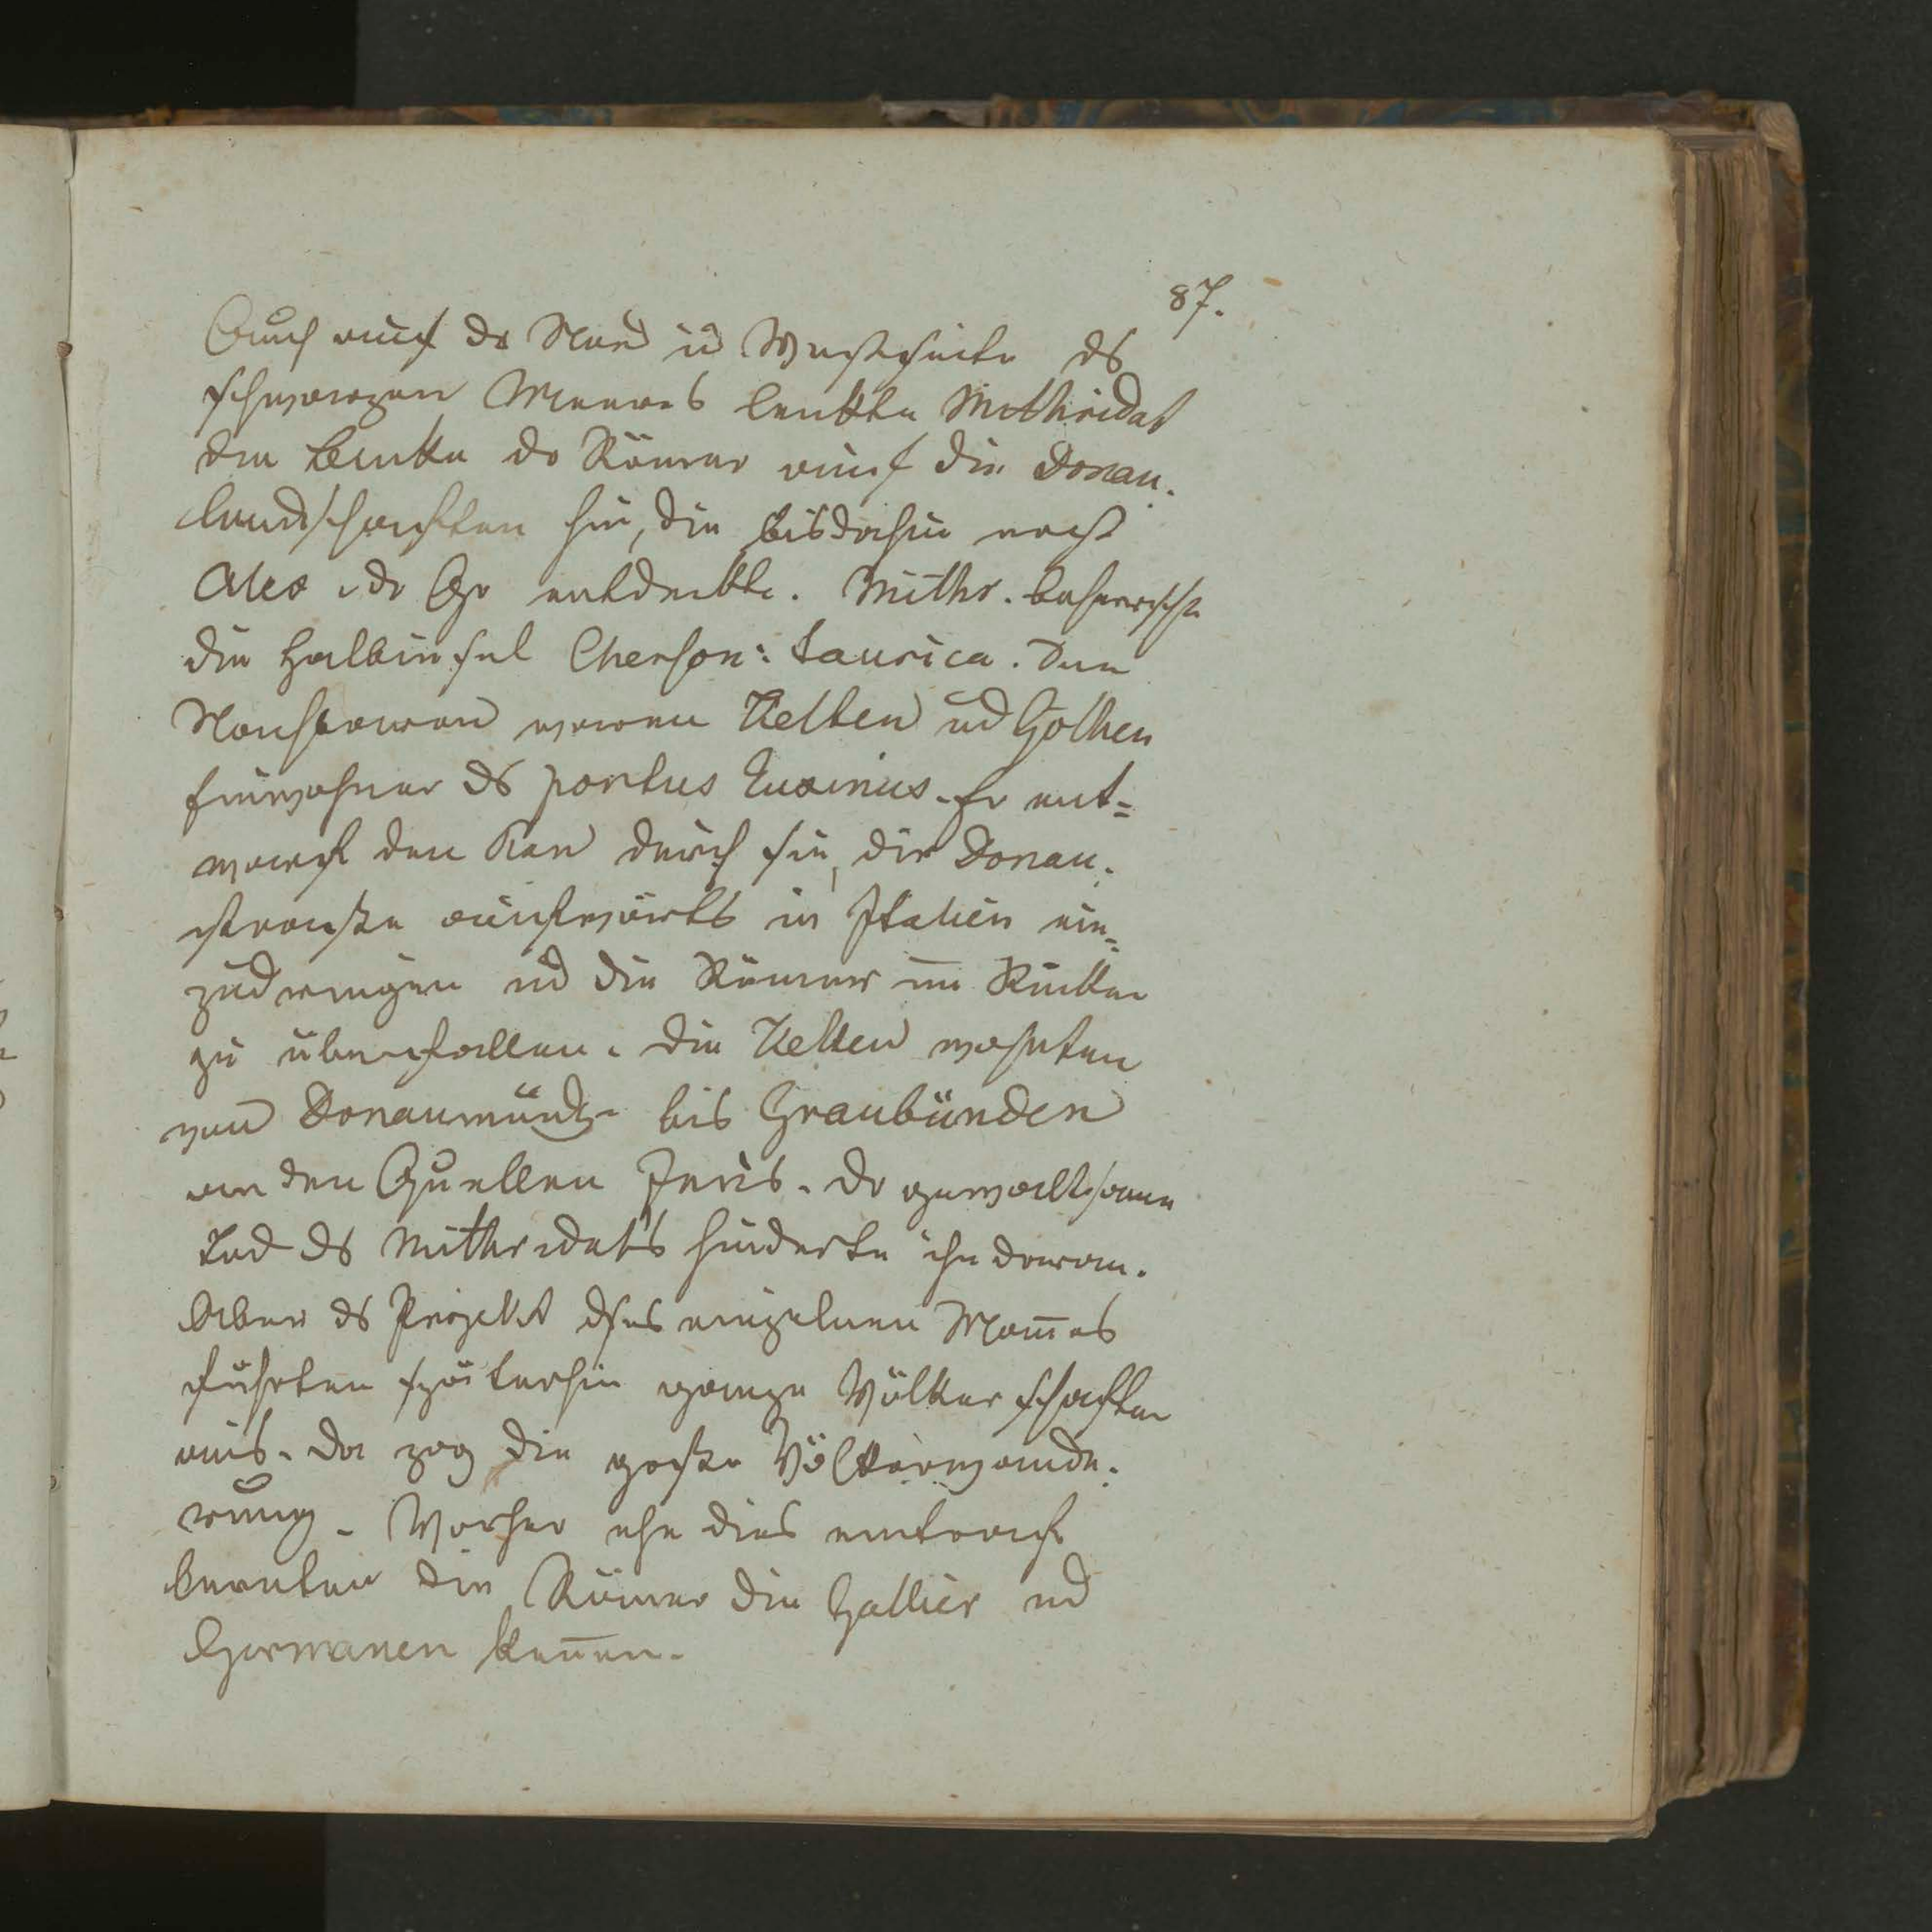 87.
Auch auf dr Nord u Westseite ds
schwarzen Meeres lenkte Mithridat
die Blicke dr Römer auf die Donau-
landschaften hin, die bisdahin nach
Alex. dr Gr entdeckte. Mithr. beherrschte
die Halbinsel Cherson: taurica. Die
Nachbaren waren Kelten ud Gothen
Einwohner ds pontus Euxinus. Er ent=
warf den Plan durch sie, die Donau-
strasse aufwärts in Italien ein=
zudringen ud die Römer im Rücken
zu überfallen. Die Kelten wohnten
von Donaumündg bis Graubünden
an den Quellen Inns. Dr gewaltsame
Tod ds Mithridats hinderte ihn daran.
Aber ds Projekt dses einzelnen Mañes
führten späterhin ganze Völkerschaften
aus. Da zog die große Völkerwande-
rung. Vorher ehe dies eintraf
lernten die Römer die Gallier ud
Germanen keñen.